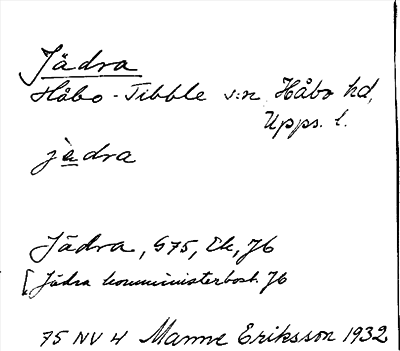 Jädra
Håbo-Tibble s:n Håbo hd,
Upps. l.
jädra
Jädra, G75, Ek, Jb
[Jädra komministerbost. Jb
75 NV 4 Manne Eriksson 1932